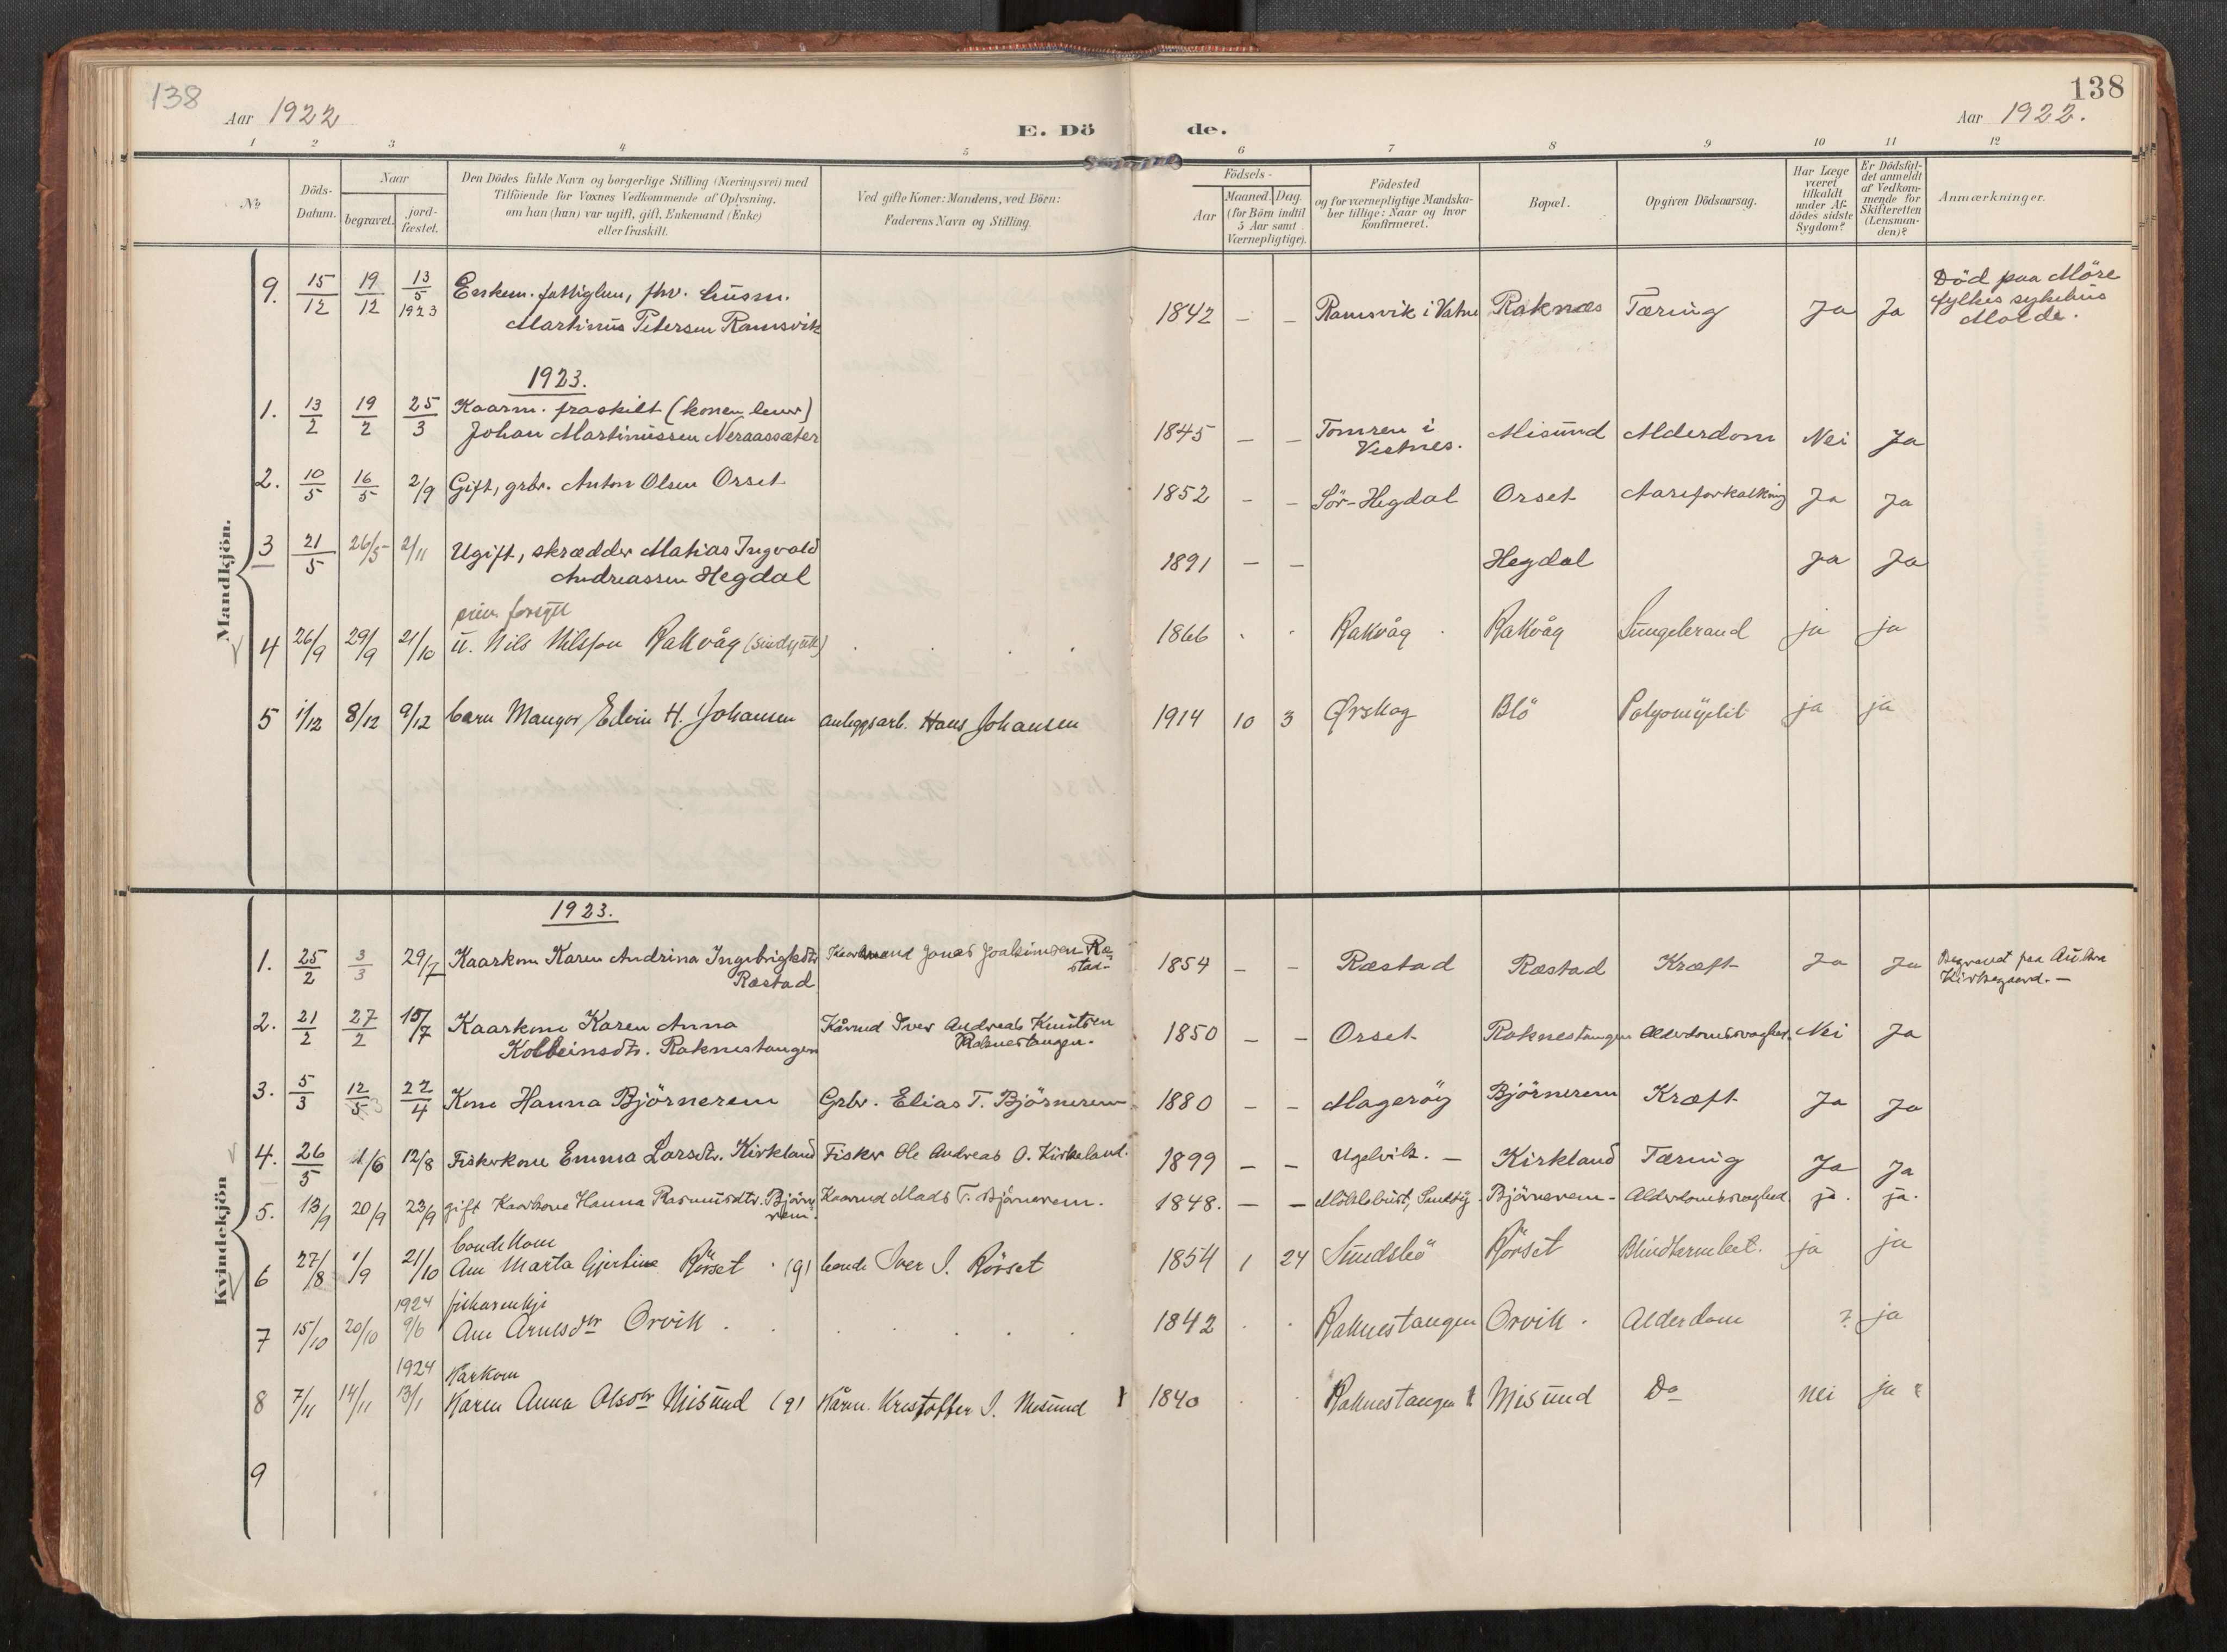 138
138
Aar 1922
E. Döde.
Aar 1922.
1 2 3 4 5 6 7 8 9 10 11 12
No
Döds-Datum.
Naar
begravet.
jord-fæstet.
Den Dödes fulde Navn og borgerlige Stilling (Næringsvei) med
Tilföiende for Voxnes Vedkommende af Oplysning,
om han (hun) var ugift, gift, Enkemand (Enke)
eller fraskilt.
Ved gifte Koner: Mandens, ved Börn:
Faderens Navn og Stilling.
Födsels-
Aar
Maaned. Dag.
(for Börn indtil
5 Aar samt
Værnepligtige).
Födested
og for værnepligtige Mandska-
ber tillige: Naar og hvor
konfirmeret.
Bopæl.
Opgiven Dödsaarsag.
Har Læge
været
tilkaldt
under Af-
dödes sidste
Sygdom?
Er Dödsfal-
det anmeldt
af Vedkom-
mende for
Skifteretten
(Lensman-
den)?
Anmærkninger.
Mandkjön.
9. 15/12 19/12 13/5 1923 Enkem. fattiglem, fhv. husm.
Martinus Petersen Ramsvik
1842 – – Ramsvik i Vatne Raknæs Tæring Ja Ja
Död paa Möre
fylkes sykehus
Molde.
1923.
1. 13/2 19/2 25/3 Kaarm. fraskilt (konen lever)
Johan Martinussen Neraassæter 1845 – – Tomren i
Vestnes. Misund Alderdom Nei Ja
2. 10/5 16/5 2/9 Gift, grbr. Anton Olsen Orset 1852 – – Sör-Hegdal Orset Aareforkalkning Ja Ja
3 21/5 26/5 2/11 Ugift, skrædder Matias Ingvald
Andreassen Hegdal 1891 – – Hegdal Ja Ja
priv. forsýtt
4 26/9 29/9 21/10 u. Nils Nilsson Rakvåg (sindssyk) 1866 Rakvåg Rakvåg Lungebrand ja ja
5 1/12 8/12 9/12 barn Mangor Edvin H. Johansen anleggsarb. Hans Johansen 1914 10 3 Ørskog Blö Polyomyelit ja ja
Kvindekjön
1923.
1. 25/2 3/3 29/7 Kaarkone Karen Andrina Ingebrigtsdtr.
Ræstad Kaarmand Jonas Joakimsen Ræ-
stad- 1854 – – Ræstad Ræstad Kræft Ja Ja Begravet paa Aukra
Kirkegaard. –
2. 21/2 27/2 15/7 Kaarkone Karen Anna
Kolbeinsdtr. Raknestangen Kårmd Iver Andreas Knutsen
Raknestangen. 1850 – – Orset Raknestangen Alderdomssvaghed. Nei Ja
3. 5/3 12/3 22/4 Kone Hanna Björnerem Grbr. Elias T. Björnerem 1880 – – Mageröy Björnerem Kræft Ja Ja
4. 26/5 1/6 12/8 Fiskerkone Emma Larsdtr. Kirkland Fisker Ole Andreas O. Kirkeland. 1899 – – Ugelvik. – Kirkland Tæring Ja Ja
5. 13/9 20/9 23/9 gift Kaarkone Hanna Rasmusdtr. Björne-
rem. Kaarmd Mads T. Björnerem. 1848. – – Björnerem – Alderdomssvaghed. ja. ja.
bondekone
6 27/8 1/9 21/10 Ane Marta Gjertine Rörset (g) bonde Iver I. Rörset 1854 1 24 Sundsbö Rörset Blindtarmbet. ja ja
1924 fiskarenkje
7 15/10 20/10 9/6 Ane Arnesdtr Orvik 1842 Raknestangen Orvik Alderdom ? ja
1924 Kårkone
8 7/11 14/11 13/1 Karen Anna Olsdtr Misund (g) Kårm. Kristoffer I. Misund 1840 Raknestangen Misund Do nei ja
9